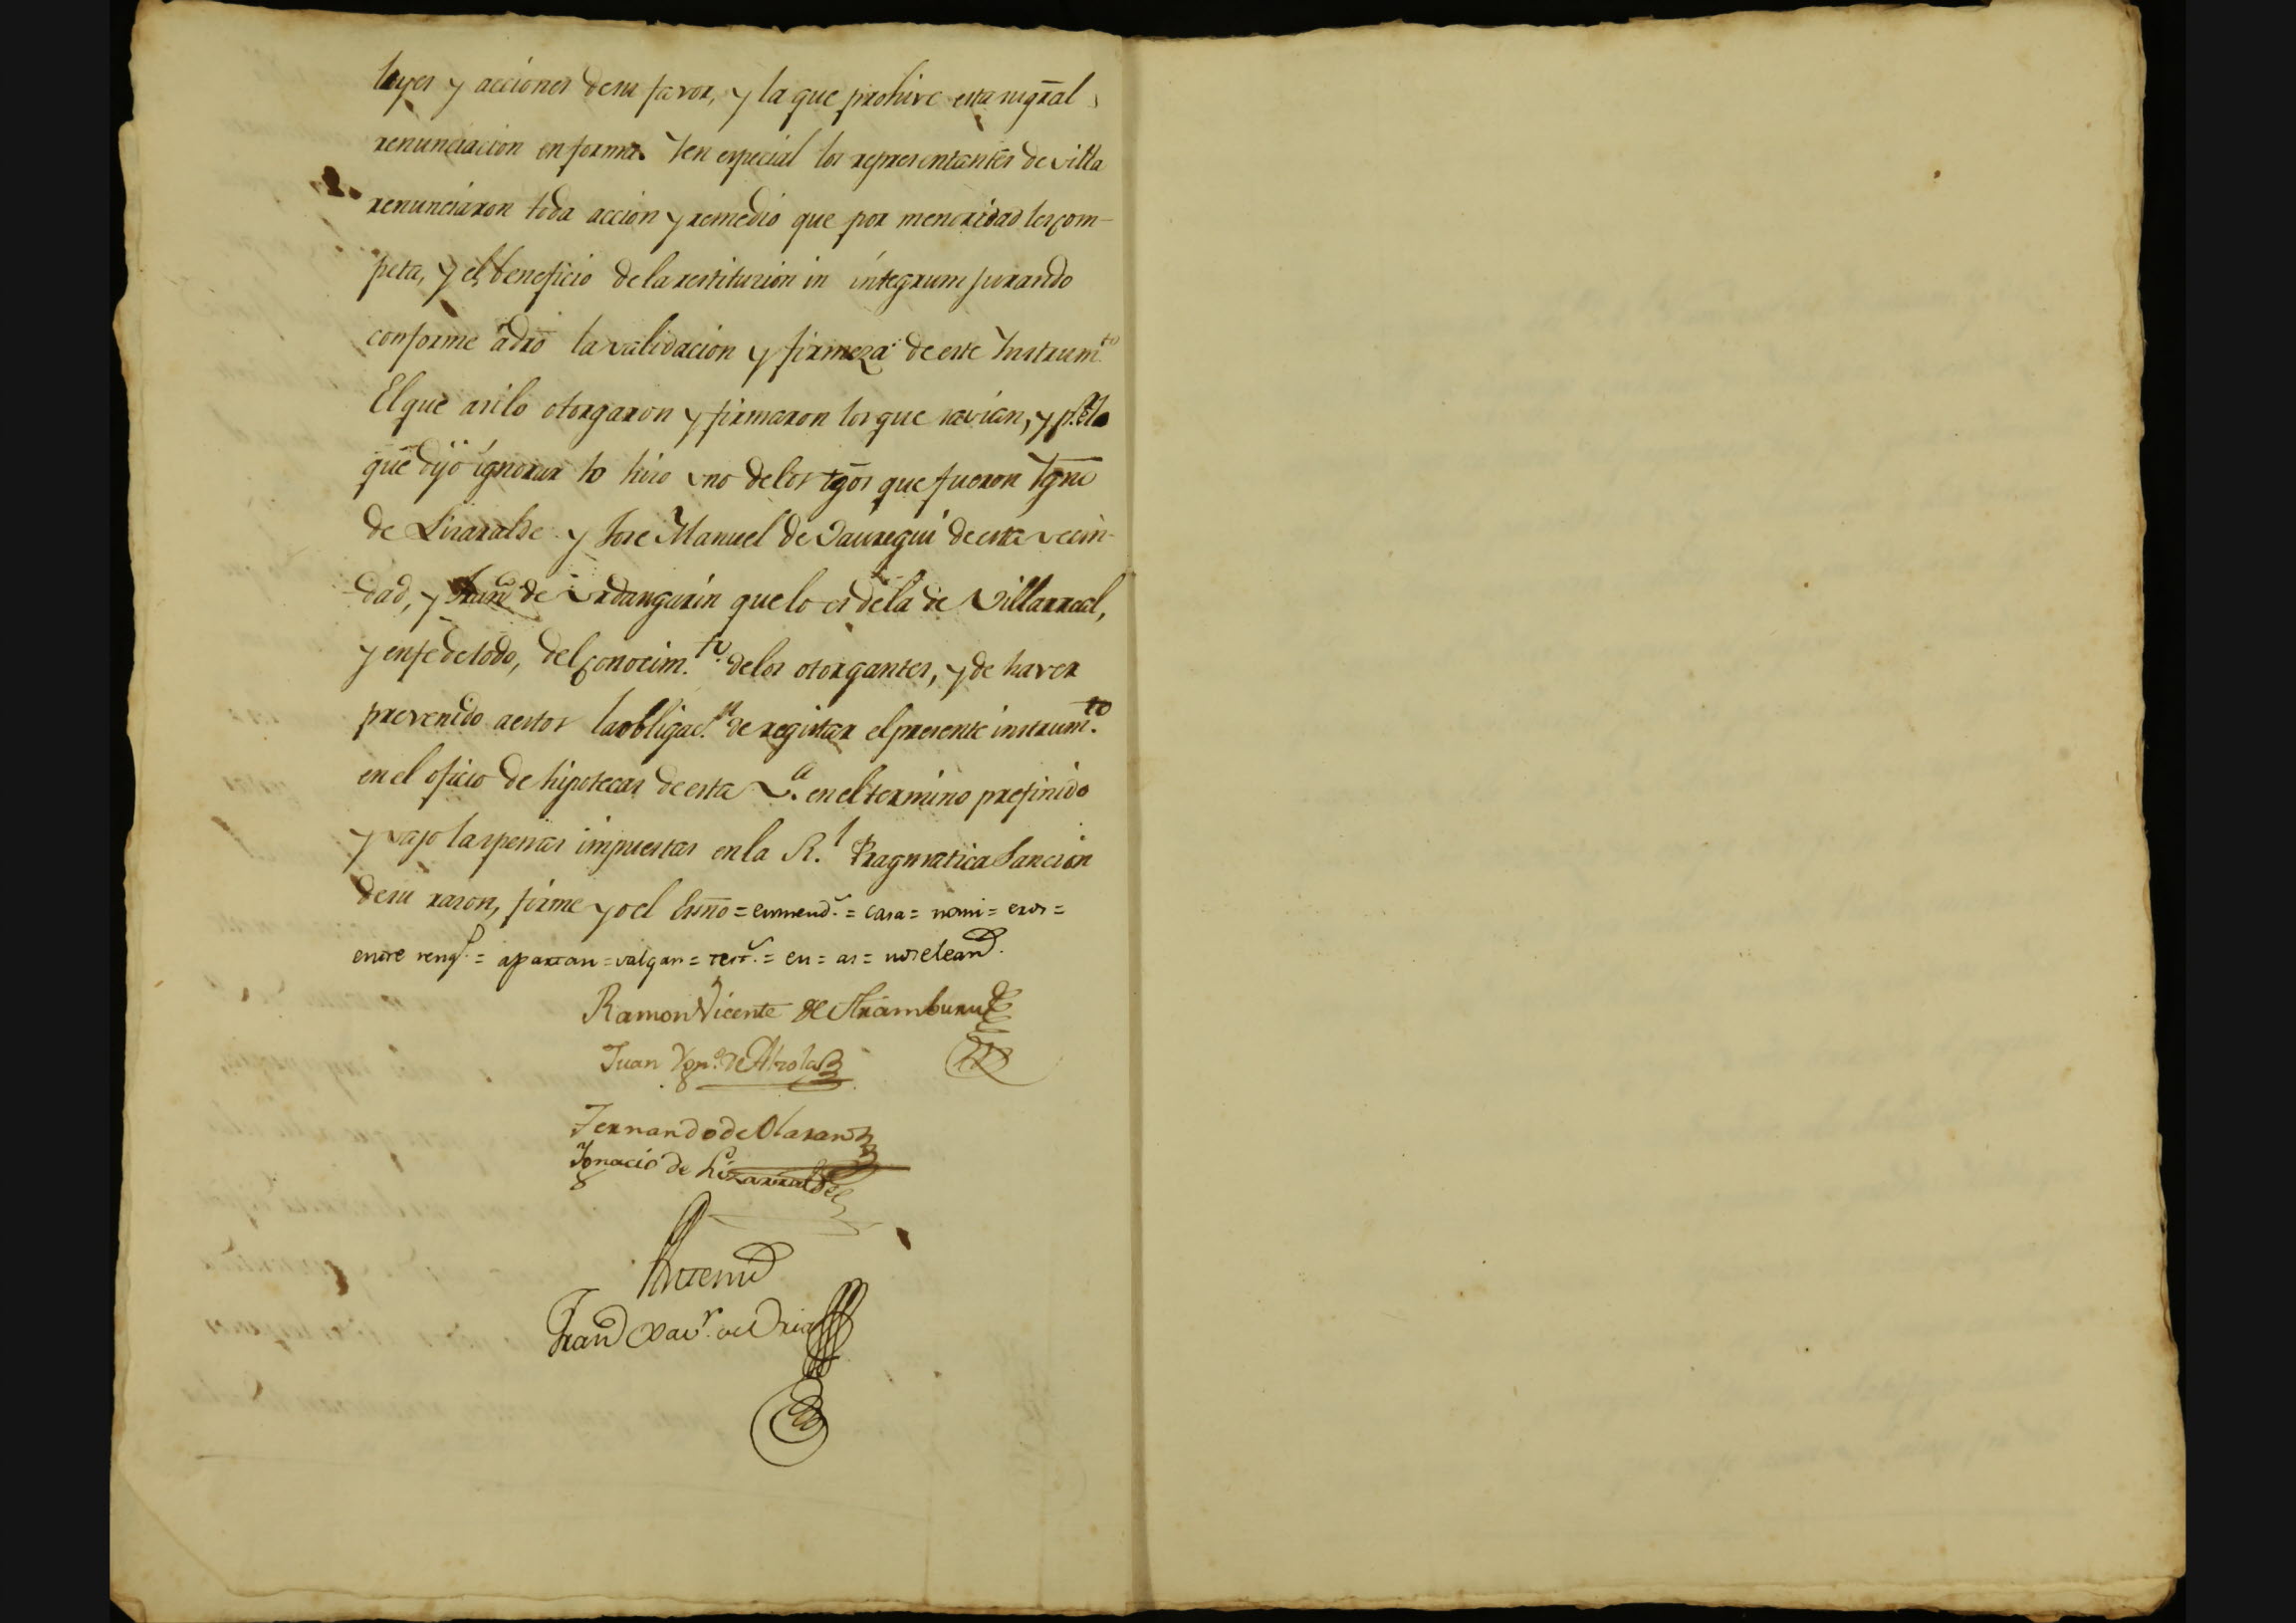 leyes y acciones desu favor, y la que prohive esta su gr̃al
renunciacion en forma. Y en especial los representantes de villa
renunciaron toda accion y remedio que por menoridad les com-
peta, y el beneficio de la restituzion in integrum jurando
conforme a dr̃o la validacion y firmeza de este Ynstrum.to
El que asi lo otorgaron y firmaron los que savian, y p.r el
que dijo ignorar lo hizo uno de los tg̃os que fueron Ygnõ
de Lizaralde y Jose Manuel de Jauregui de esta vecin-
dad, y Franco de Urdangarin que lo es de la de Villarreal,
y en fe de todo, del conocim.to de los otorgantes, y de haver
prevenido a estos la obligac.n de registar el presente instrum.to
en el oficio de hipotecas de esta V.a en el termino prefinido
y vajo las penas impuestas en la R.l Pragmatica Sancion
de su razon, firme yo el Esñõ = enmend.o = casa = nomi = eros =
entre reng.s = apartan = valgan = test.o = en = as = no se lean.
Ramon Vicente de Aramburu
Juan Ygn.o de Alzola
Fernando de Olaran
Ygnacio de Lizarralde
Antemi
Franco Xav.r de Oria